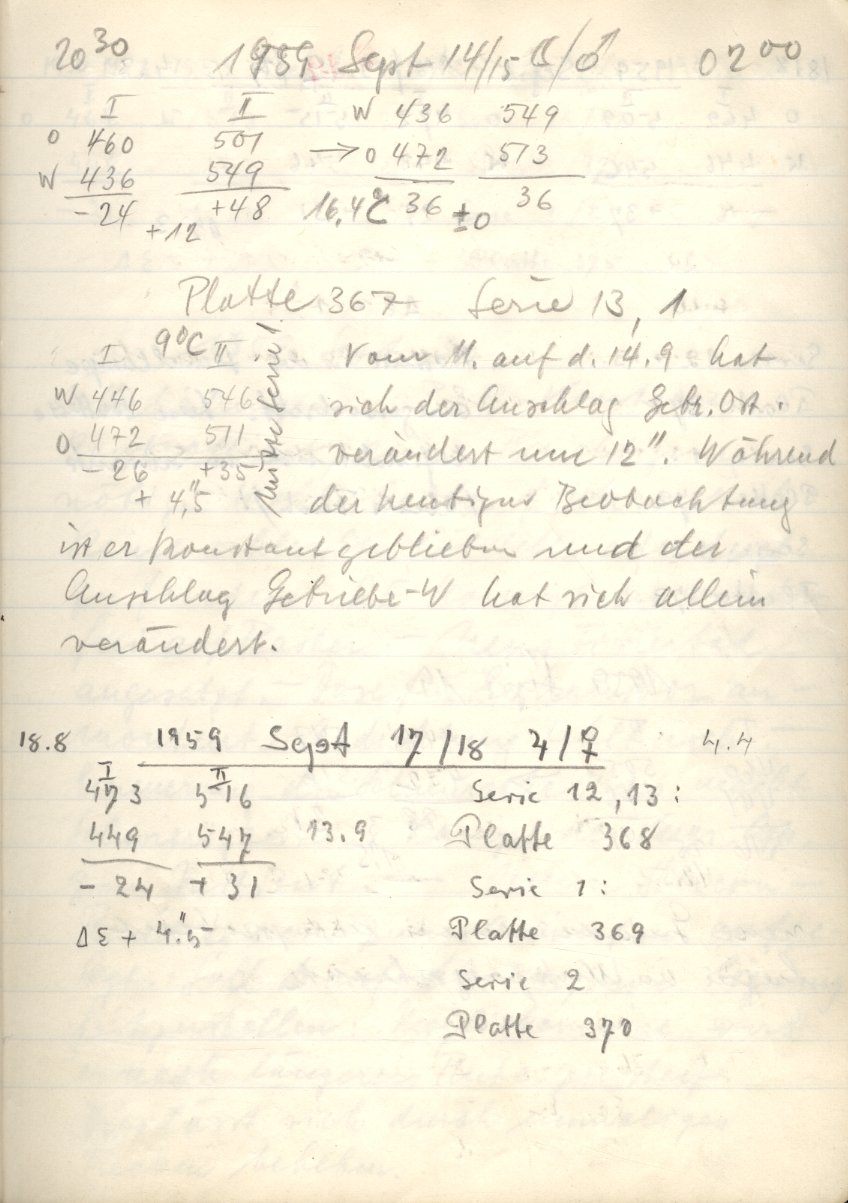 20³⁰ 1959 Sept 14/15 ☾/♂ 02⁰⁰
I II W 436 549
O 460 501 → O 472 513
W 436 549 36 36
-24 +48 16,4°C ±0
+12
Platte 367 Serie 13, 1
I 9°C II Vom 11. auf d. 14.9 hat
W 446 546 sich der Anschlag Getr. Ost.
O 472 511 verändert um 12". Während
-26 +35 Mitte Serie 1.
+ 4",5 der heutigen Beobachtung
ist er konstant geblieben und der
Anschlag Getriebe-W hat sich allein
verändert.
18.8 1959 Sept 17/18 ♃/♀ 4.4
I II
473 516 Serie 12, 13:
449 547 13.9 Platte 368
- 24 + 31 Serie 1:
Δε + 4".5 Platte 369
Serie 2
Platte 370